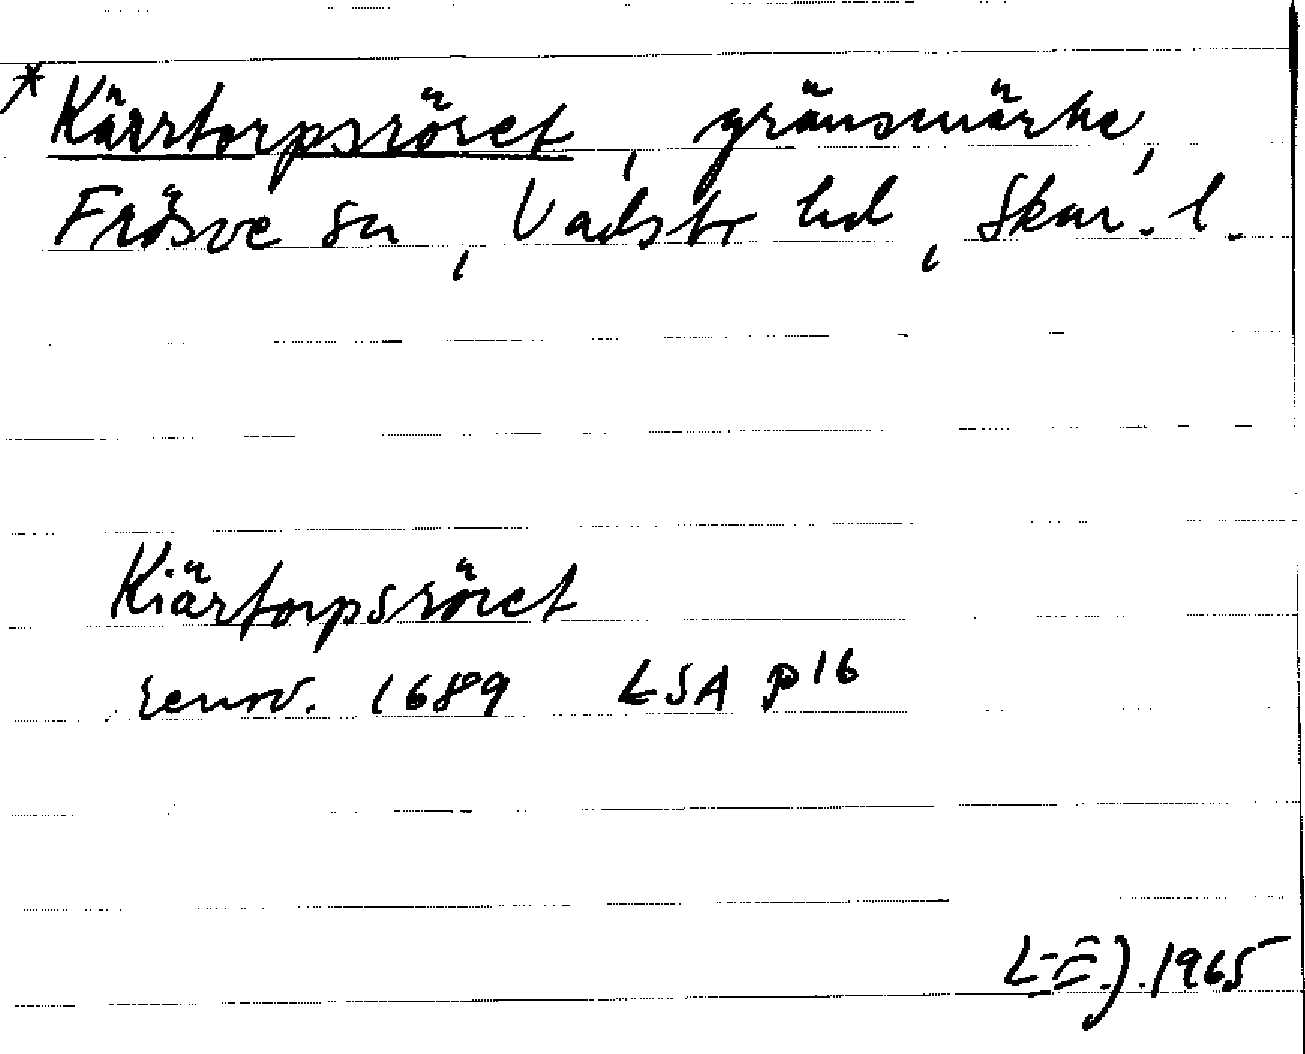 * Kärrtorpsröset, gränsmärke,
Frösve sn, Vadsbr hd, Skar. l.
Kiärtorpsröset
renov. 1689 LSA P16
L-E J. 1965